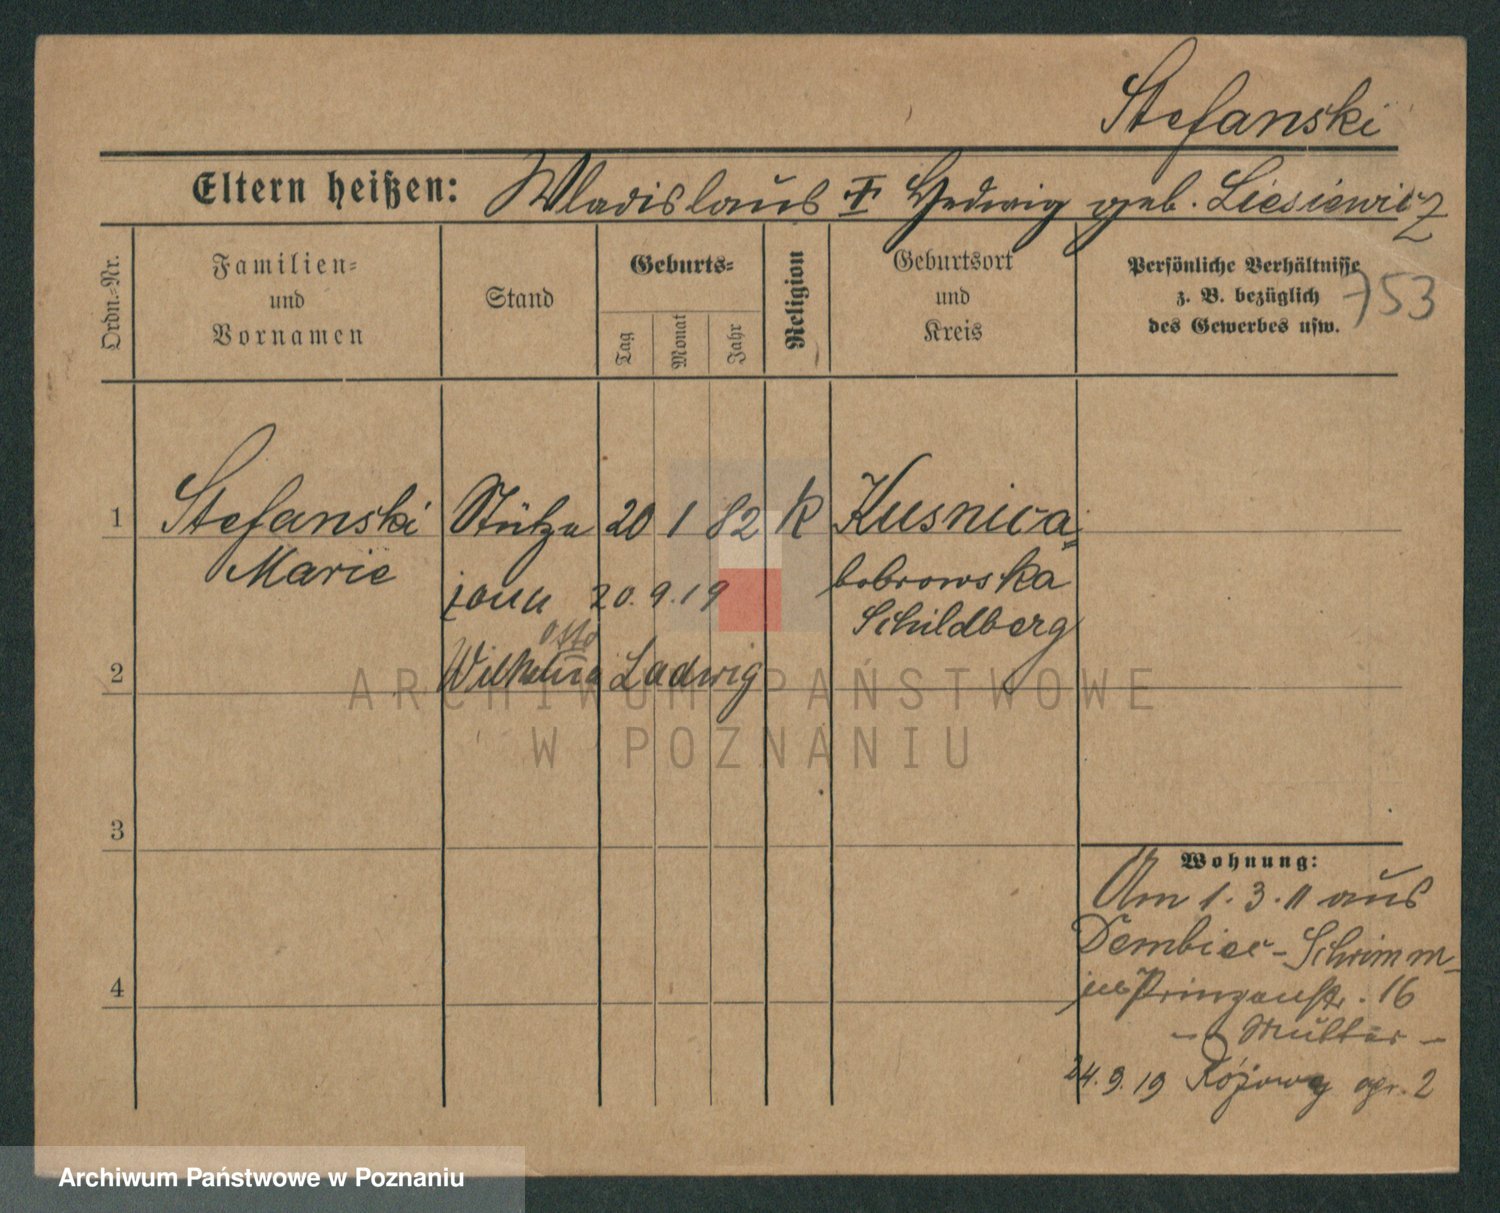 Stefanski
Eltern heißen: Wladislaus † Hedwig geb. Liesiewicz
Ordn.-Nr.
Familien- und Vornamen
Stand
Geburts-
Tag
Monat
Jahr
Religion
Geburtsort und Kreis
Persönliche Verhältnisse
z. B. bezüglich
des Gewerbes usw.
753
1 Stefanski Stütze 20 1 82 K Kusnica
Marie
bobrowska
20.9.19
Schildberg
Otto
2 Wilhelm Ladwig
ARCHIWUM PAŃSTWOWE
W POZNANIU
3
Wohnung:
Am 1.3.11 aus
Dembiec - Schrimm
4
Prinzenstr. 16
- Mutter -
24.9.19 Różowy ogr. 2
Archiwum Państwowe w Poznaniu